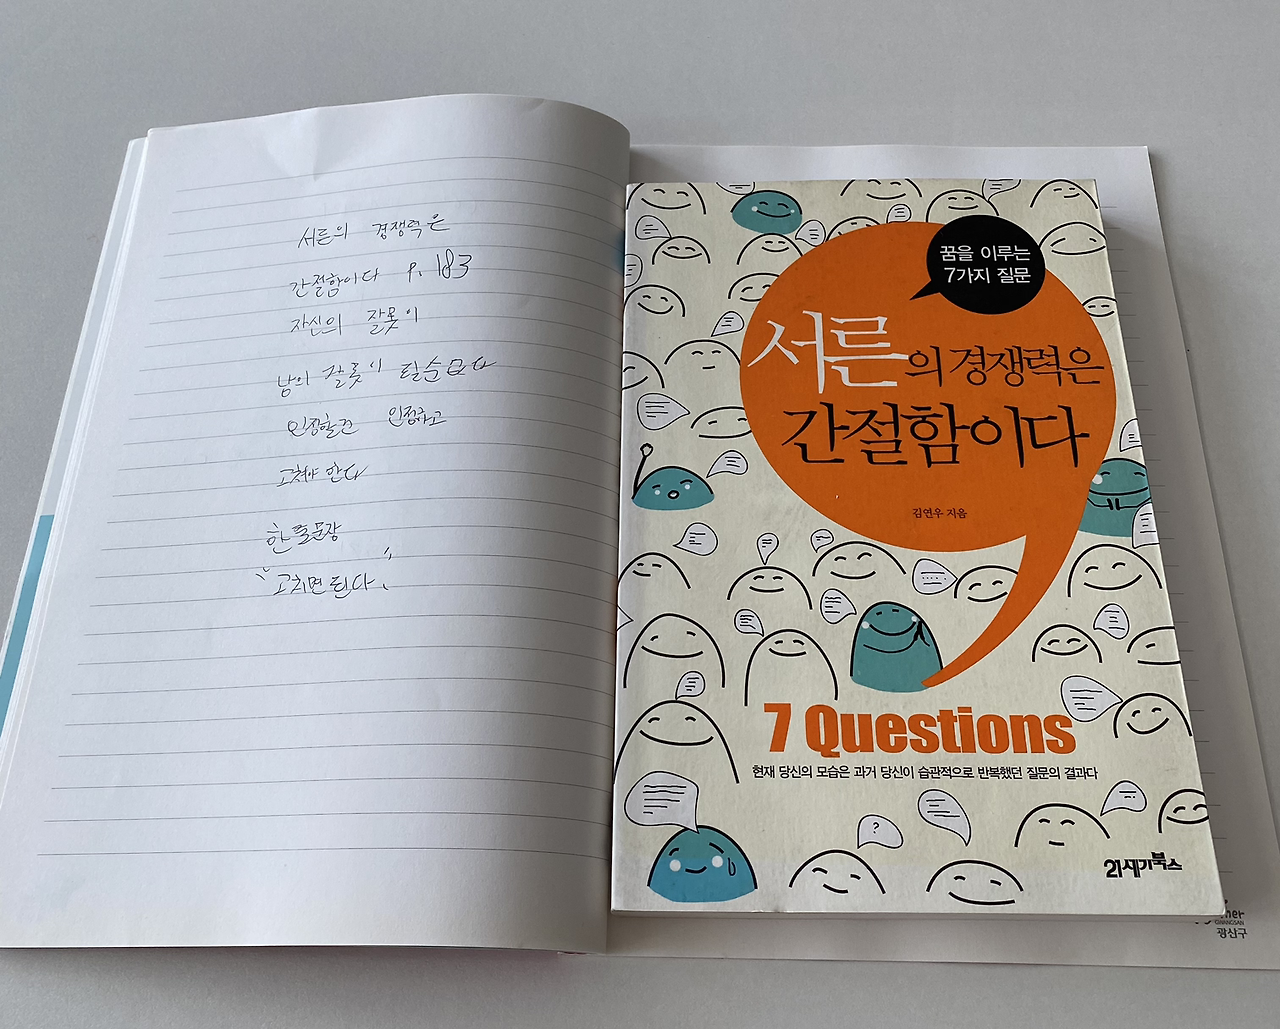 서른의 경쟁력은
간절함이다 P. 183
자신의 잘못이
남의 잘못이 될순없다
인정할건 인정하고
고쳐야 한다
한줄문장
"고치면 된다."
꿈을 이루는
7가지 질문
서른의 경쟁력은
간절함이다
김연우 지음
7 Questions
현재 당신의 모습은 과거 당신이 습관적으로 반복했던 질문의 결과다
?
21세기북스
GWANGSAN
광산구